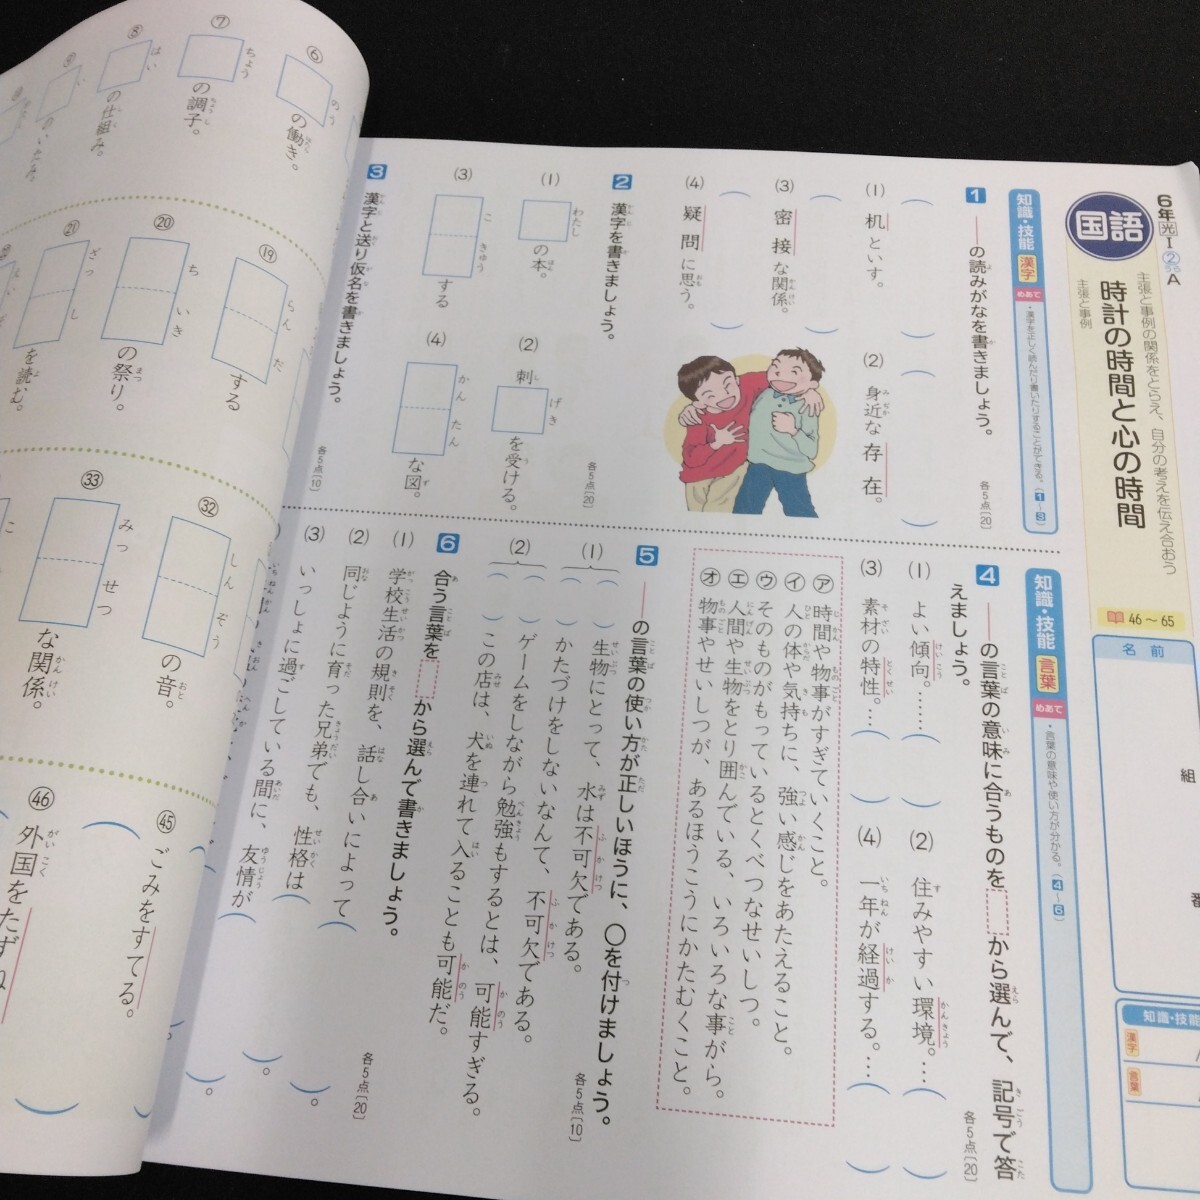 6年 光 Ⅰ ② A
国語
主張と事例の関係をとらえ、自分の考えを伝え合おう
時計の時間と心の時間
主張と事例
46～65
名前
組
番
知識・技能
漢字
言葉
知識・技能 漢字 めあて ・漢字を正しく読んだり書いたりすることができる。（1～3）
1 ――の読みがなを書きましょう。 各5点〔20〕
(1) 机といす。
(2) 身近な存在。
(3) 密接な関係。
(4) 疑問に思う。
2 漢字を書きましょう。 各5点〔20〕
(1) わたしの本。
(2) 刺げきを受ける。
(3) こきゅうする
(4) かんたんな図。
3 漢字と送り仮名を書きましょう。 各5点〔10〕
知識・技能 言葉 めあて ・言葉の意味や使い方が分かる。（4～6）
4 ――の言葉の意味に合うものを　から選んで、記号で答えましょう。 各5点〔20〕
(1) よい傾向。……（　）
(2) 住みやすい環境。…（　）
(3) 素材の特性。…（　）
(4) 一年が経過する。…（　）
ア 時間や物事がすぎていくこと。
イ 人の体や気持ちに、強い感じをあたえること。
ウ そのものがもっているとくべつなせいしつ。
エ 人間や生物をとり囲んでいる、いろいろな事がら。
オ 物事やせいしつが、あるほうこうにかたむくこと。
5 ――の言葉の使い方が正しいほうに、○を付けましょう。 各5点〔10〕
(1)（　）生物にとって、水は不可欠である。
（　）かたづけをしないなんて、不可欠である。
(2)（　）ゲームをしながら勉強もするとは、可能すぎる。
（　）この店は、犬を連れて入ることも可能だ。
6 合う言葉を　から選んで書きましょう。 各5点〔20〕
(1) 学校生活の規則を、話し合いによって（　）。
(2) 同じように育った兄弟でも、性格は（　）。
(3) いっしょに過ごしている間に、友情が（　）。
⑥ のうの働き。
⑦ ちょうの調子。
⑧ はいの仕組み。
⑨ いのいたみ。
⑲ らんだする
⑳ ちいきの祭り。
㉑ ざっしを読む。
㉜ しんぞうの音。
㉝ みっせつな関係。
㊺ ごみをすてる。
㊻ 外国をたずね